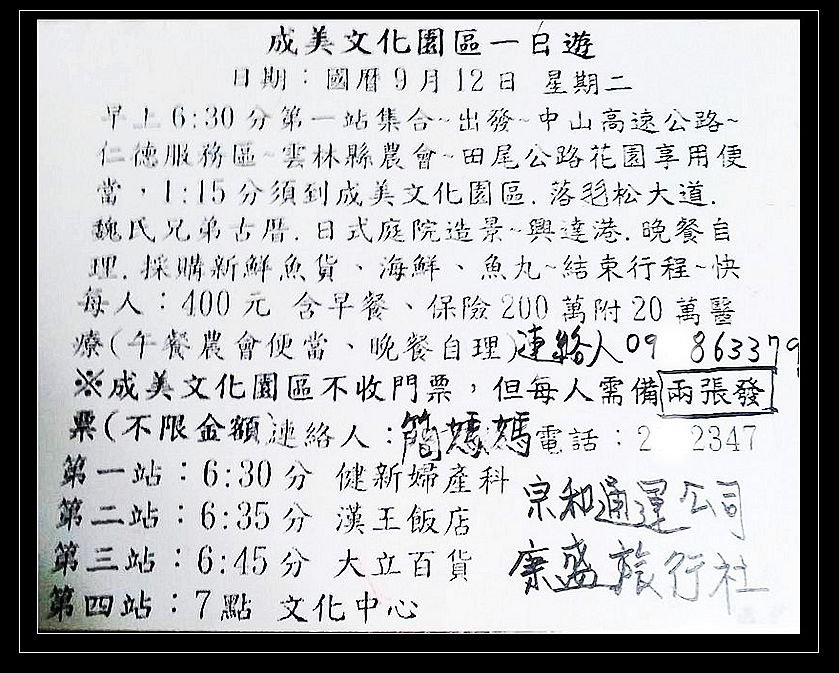 成美文化園區一日遊
日期：國曆9月12日 星期二
早上6:30分第一站集合~出發~中山高速公路~
仁德服務區~雲林縣農會~田尾公路花園享用便
當，1:15分須到成美文化園區.落羽松大道.
魏氏兄弟古厝.日式庭院造景~興達港.晚餐自
理.採購新鮮魚貨、海鮮、魚丸~結束行程~快
每人：400元 含早餐、保險200萬附20萬醫
療(午餐農會便當、晚餐自理)連絡人09 863379
※成美文化園區不收門票，但每人需備兩張發
票(不限金額)連絡人：簡媽媽電話：2 2347
第一站：6:30分 健新婦產科
第二站：6:35分 漢王飯店
第三站：6:45分 大立百貨
第四站：7點 文化中心
宗和通運公司
康盛旅行社